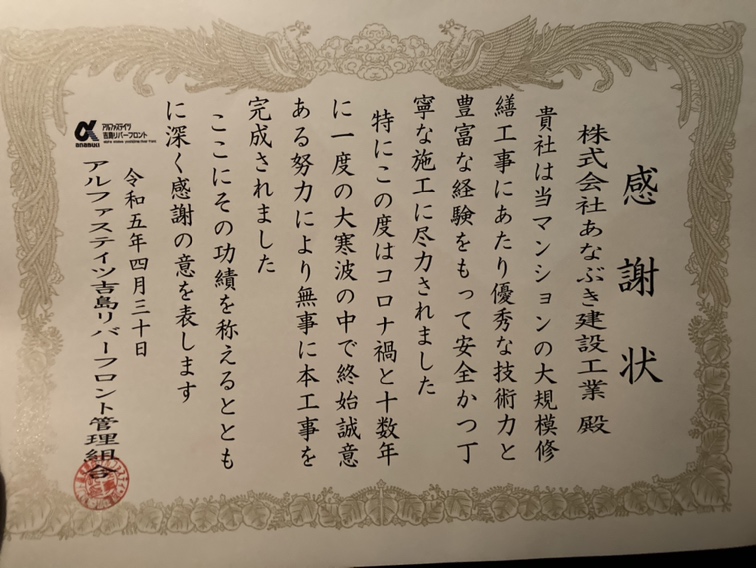 感謝状
株式会社あなぶき建設工業 殿
貴社は当マンションの大規模修
繕工事にあたり優秀な技術力と
豊富な経験をもって安全かつ丁
寧な施工に尽力されました
特にこの度はコロナ禍と十数年
に一度の大寒波の中で終始誠意
ある努力により無事に本工事を
完成されました
ここにその功績を称えるととも
に深く感謝の意を表します
令和五年四月三十日
アルファステイツ
吉島リバーフロント
anabuki
アルファステイツ吉島リバーフロント管理組合